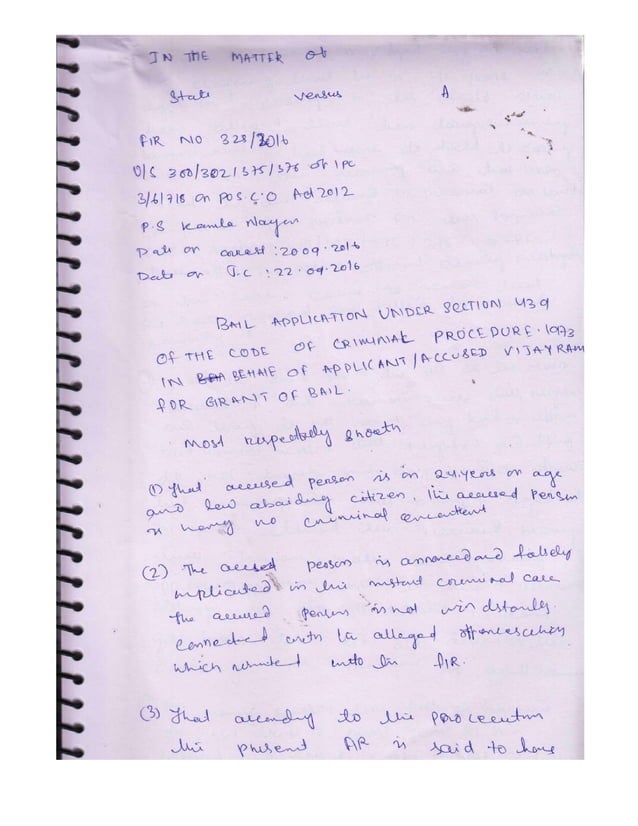 IN THE MATTER of
State versus A
FIR NO 328/2016
U/S 300/302/375/376 of IPC
3/6/7/8 on POS.C.O Act 2012
P.S Kamla Nagar
Date on arrest : 20.09.2016
Date on J.C : 22.09.2016
BAIL APPLICATION UNDER SECTION 439
OF THE CODE OF CRIMINAL PROCEDURE. 1973
IN BEHALF OF APPLICANT/ACCUSED VIJAY RAM
FOR GRANT OF BAIL.
Most respectfully showeth
(1) That accused person is on 24 years on age
and law abaiding citizen. The accused person
is having no criminal
(2) The accused person is and falsely
implicated in the instant criminal case
The accused person is not
connected with the alleged
which into the FIR.
(3) That according to the
the present is said to have